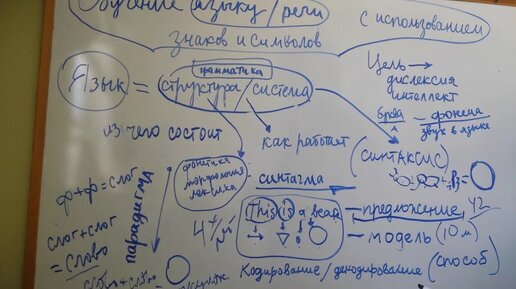 Обучение языку / речи
с использованием
знаков и символов
Цель →
дислексия
интеллект
грамматика
Язык = структура / система
буква — фонема
звук в языке
из чего состоит
как работает
(синтаксис)
фонетика
морфология
лексика
синтагма
парадигма
ф + ф = слог
слог + слог
= слово
This is a bear
— предложение
42
— модель (10 м)
Кодирование / декодирование (способ)